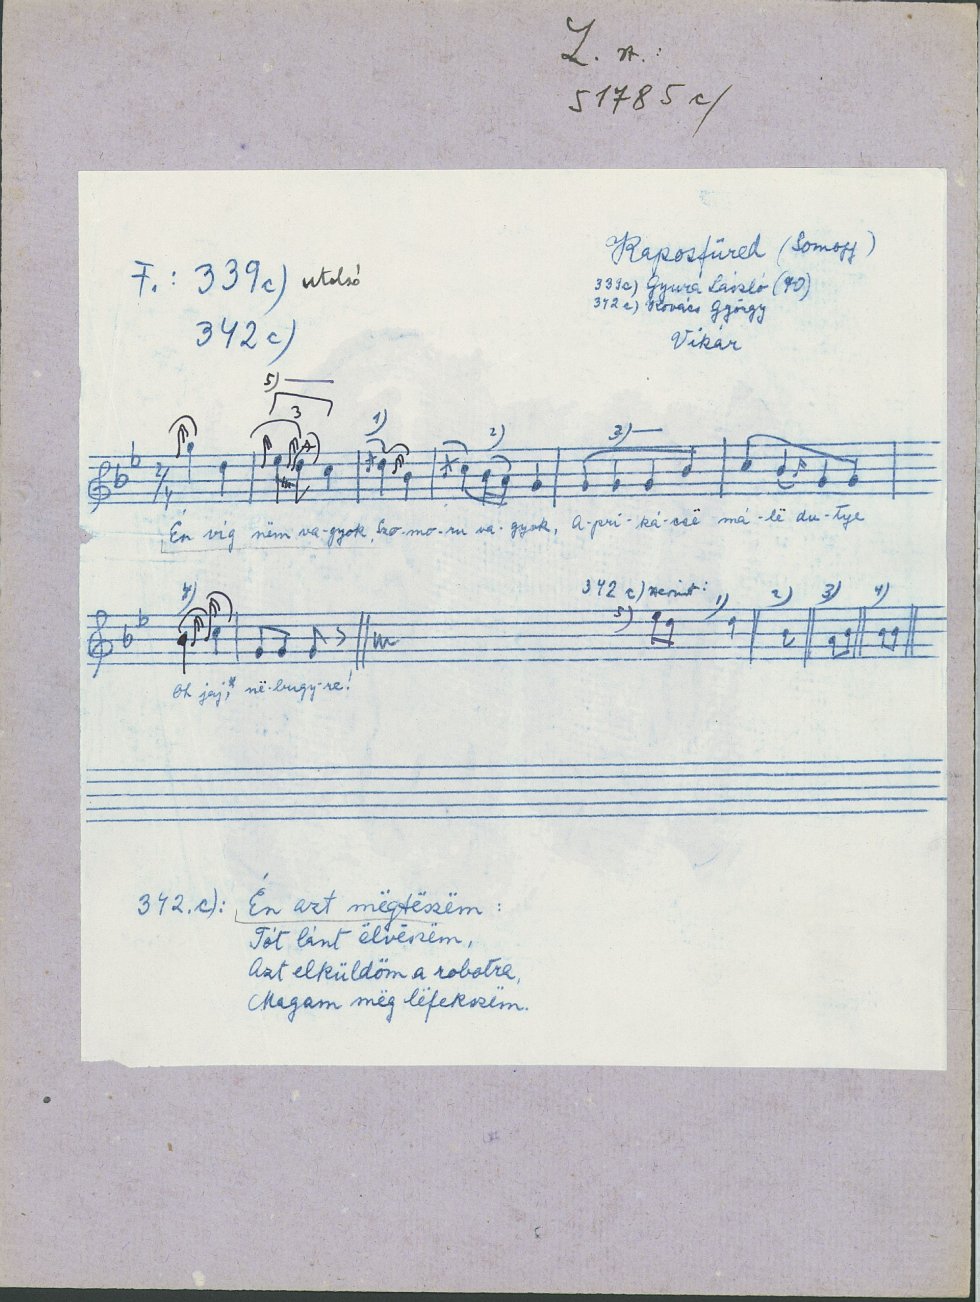 L. sz.:
51785 c/
F.: 339c) utolsó
342 c)
Kaposfüred (Somogy)
339c) Gyura László (70)
342 c) Kovács György
Vikár
5)
3
1) 2) 3)
2/4
Én víg nëm va-gyok, Szo-mo-ru va-gyok, A-pri-ká-
má-lë du-tye
4)
342 c) szerint:
5) 1) 2) 3) 4)
Oh jaj,* në-bugy-re!
342.c): Én azt mëgtëszëm:
Tót lánt ëlvëszëm,
Azt elküldöm a robotra,
Magam mëg lëfekszëm.